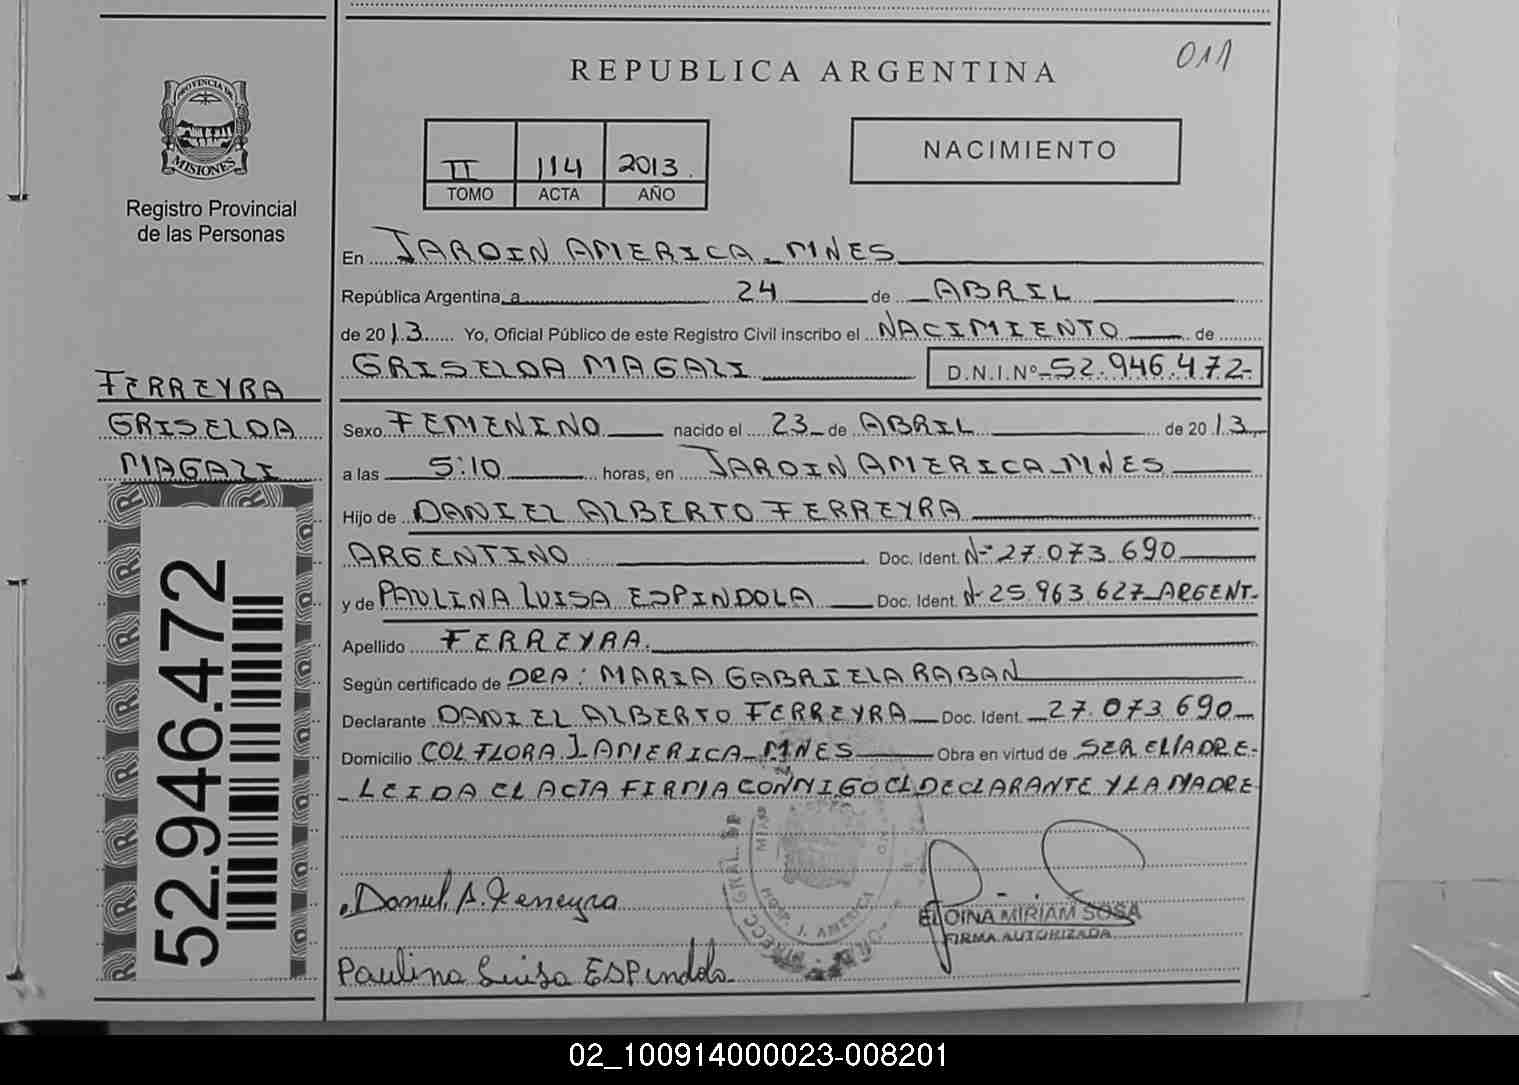 011
REPUBLICA ARGENTINA
PROVINCIA DE
MISIONES
Registro Provincial
de las Personas
II 114 2013.
TOMO ACTA AÑO
NACIMIENTO
En JARDIN AMERICA - MNES
República Argentina, a 24 de ABRIL
de 2013 Yo, Oficial Público de este Registro Civil inscribo el NACIMIENTO de
GRISELDA MAGALI D.N.I.Nº 52.946.472-
FERREYRA
GRISELDA
MAGALI
Sexo FEMENINO nacido el 23 de ABRIL de 2013
a las 5:10 horas, en JARDIN AMERICA - MNES
Hijo de DANIEL ALBERTO FERREYRA
ARGENTINO Doc. Ident. Nº 27.073.690
y de PAULINA LUISA ESPINDOLA Doc. Ident. Nº 25.963.627 ARGENT-
Apellido FERREYRA.
Según certificado de DRA: MARIA GABRIELA RABAN
Declarante DANIEL ALBERTO FERREYRA Doc. Ident. 27.073.690
Domicilio COL FLORA J. AMERICA - MNES Obra en virtud de SER EL PADRE-
- LEIDA EL ACTA FIRMA CONMIGO EL DECLARANTE Y LA MADRE
52.946.472
Daniel A. Ferreyra
HOSP. J. AMERICA
ELOINA MIRIAM SOSA
FIRMA AUTORIZADA
Paulina Luisa ESPindola
02_100914000023-008201